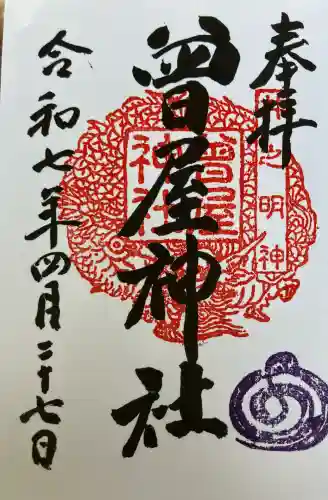 奉拝
曽屋神社
令和七年四月二十七日
曽屋
神社
明神